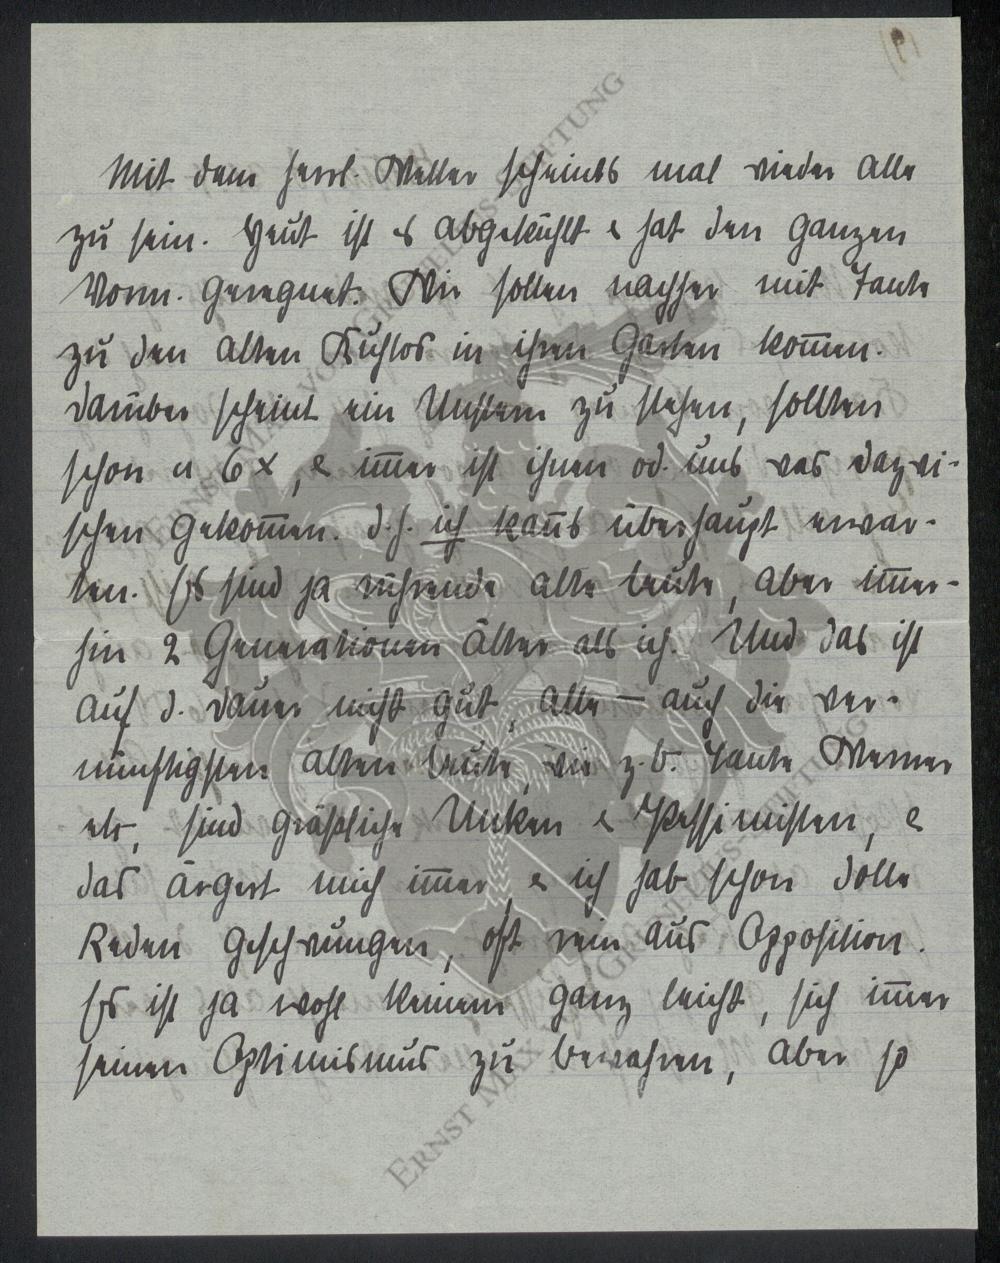 Mit dem herrl. Wetter scheints mal wieder alle
zu sein. Heut ist es abgekühlt & hat den ganzen
Vorm. geregnet. Wir sollen nachher mit Tante
zu den alten Kuhlos in ihren Garten kom̅en.
Darüber scheint ein Unstern zu stehen, sollten
schon a 6 x, & im̅er ist ihnen od. uns was dazwi-
schen gekom̅en. d. h. ich kan̅s überhaupt erwar-
ten. Es sind ja rührende alte Leute, aber im̅er-
hin 2 Generationen älter als ich. Und das ist
auf d. Dauer nicht gut, alle – auch die ver-
nünftigsten alten Leute, wie z. b. Tante Werner
etc, sind gräßliche Unken & Pessimisten, &
das ärgert mich im̅er, & ich hab schon dolle
Reden geschwungen, oft rein aus Opposition.
Es ist ja wohl keinem ganz leicht, sich im̅er
seinen Optimismus zu bewahren, aber so
ERNST MAX VON GRUNELIUS-STIFTUNG
ERNST MAX VON GRUNELIUS-STIFTUNG